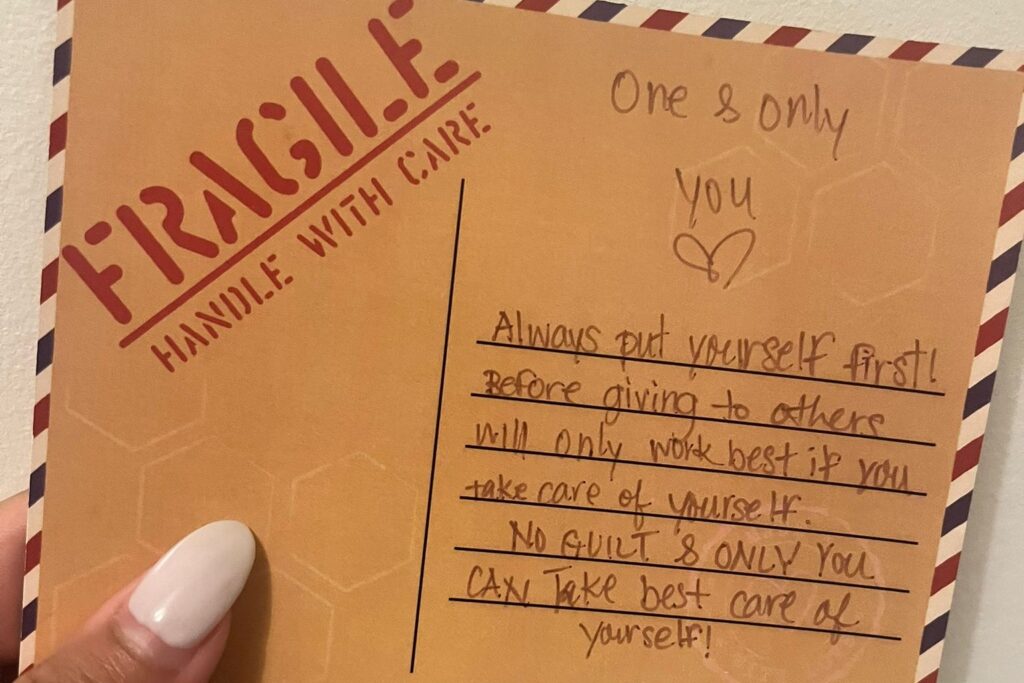 FRAGILE
HANDLE WITH CARE
One & only
you
Always put yourself first!
Before giving to others
will only work best if you
take care of yourself.
NO GUILT & ONLY YOU
CAN Take best care of
yourself!